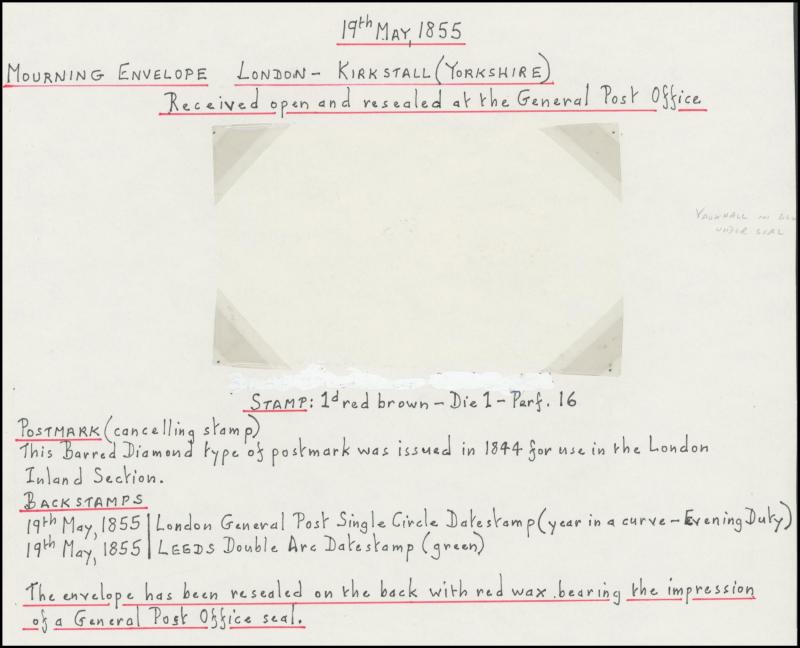 19th May, 1855
MOURNING ENVELOPE LONDON - KIRKSTALL (YORKSHIRE)
Received open and resealed at the General Post Office
VAUXHALL
UNDER SEAL
STAMP: 1d red brown - Die 1 - Perf. 16
POSTMARK (cancelling stamp)
This Barred Diamond type of postmark was issued in 1844 for use in the London
Inland Section.
BACKSTAMPS
19th May, 1855 | London General Post Single Circle Datestamp (year in a curve - Evening Duty)
19th May, 1855 | LEEDS Double Arc Datestamp (green)
The envelope has been resealed on the back with red wax bearing the impression
of a General Post Office seal.